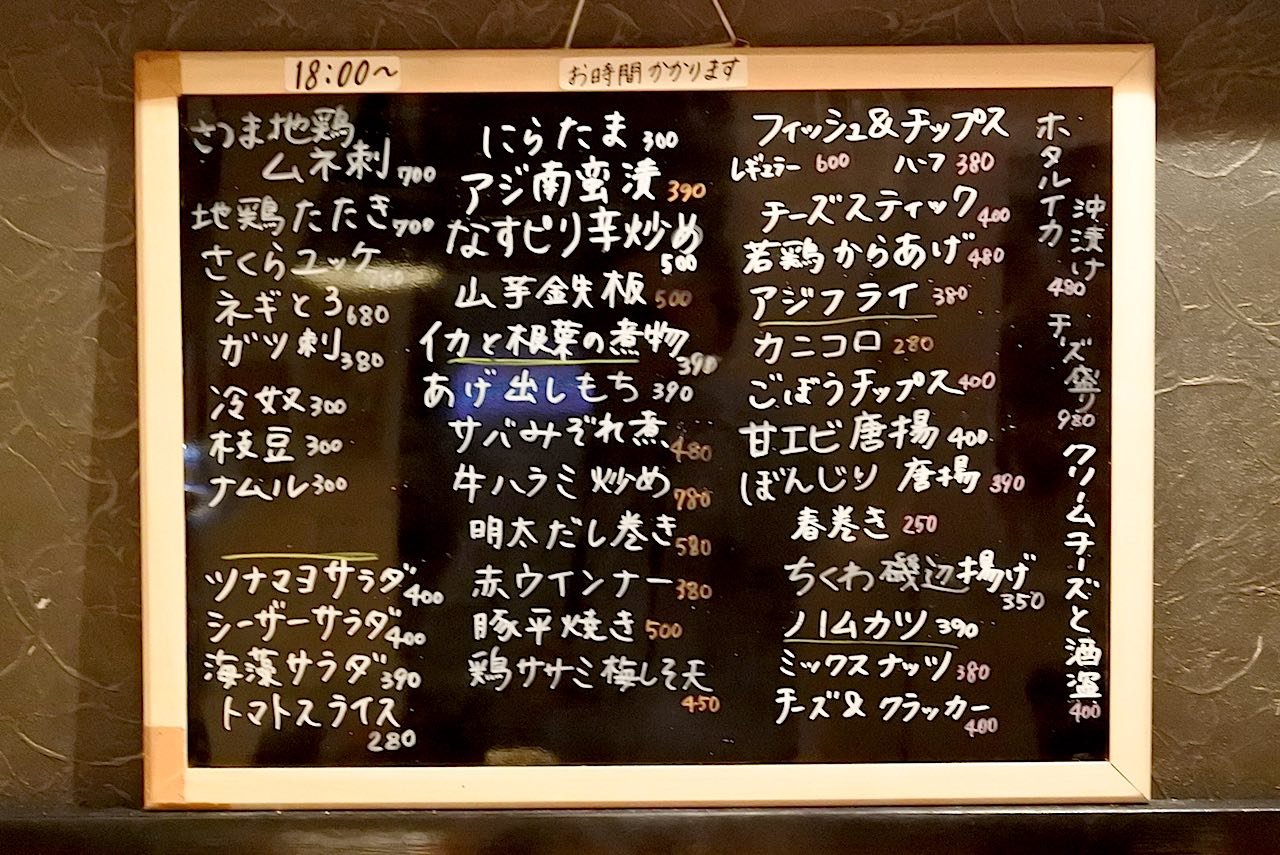 18:00〜
お時間かかります
さつま地鶏
ムネ刺 700
地鶏たたき 700
さくらユッケ 780
ネギとろ 680
ガツ刺 380
冷奴 300
枝豆 300
ナムル 300
ツナマヨサラダ 400
シーザーサラダ 400
海藻サラダ 390
トマトスライス
280
にらたま 300
アジ南蛮漬 390
なすピリ辛炒め
500
山芋鉄板 500
イカと根菜の煮物
390
あげ出しもち 390
サバみぞれ煮 480
牛ハラミ炒め 780
明太だし巻き 580
赤ウインナー 380
豚平焼き 500
鶏ササミ梅しそ天
450
フィッシュ&チップス
レギュラー 600 ハーフ 380
チーズスティック 400
若鶏からあげ 480
アジフライ 380
カニコロ 280
ごぼうチップス 400
甘エビ唐揚 400
ぼんじり唐揚 390
春巻き 250
ちくわ磯辺揚げ
350
ハムカツ 390
ミックスナッツ 380
チーズ&クラッカー
400
ホタルイカ
沖漬け
480
チーズ盛り
980
クリームチーズと酒盗
400